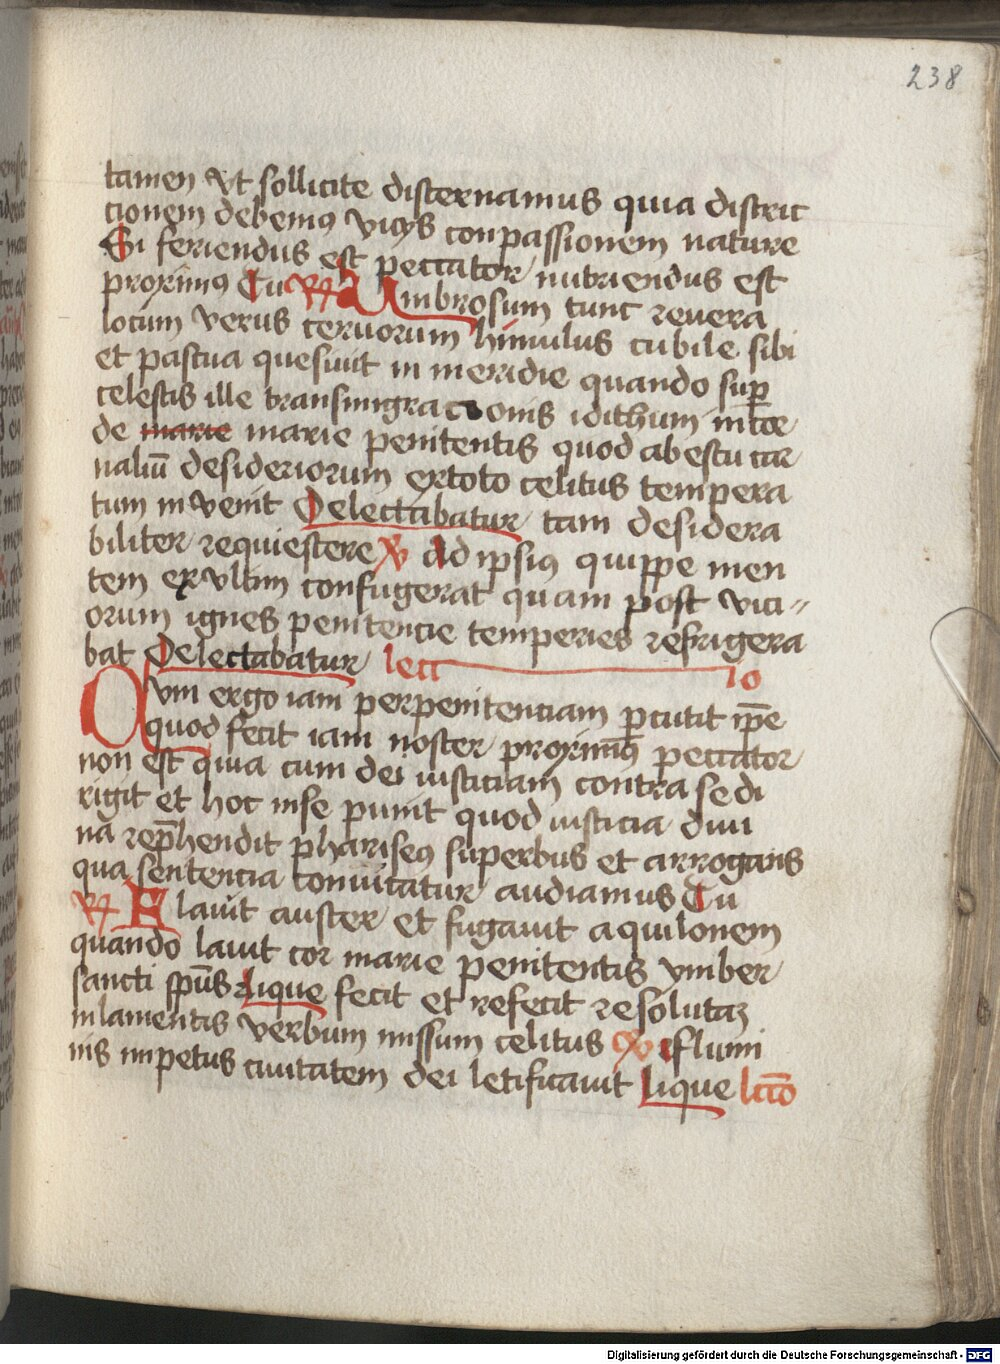 238
tamen vt sollicite discernamus quia distric
tionem debemus vicijs conpassionem nature
Si feriendus est peccator nutriendus est
proximus Tu Vmbrosum tunc reuera
locum verus ceruorum himulus cubile sibi
et pascua quesiuit in meridie quando sup
celestis ille transmigracionis idithum
de marie marie penitentis quod ab estu car
naliū desideriorum ex toto celitus tempera
tum in venit Delectabatur tam desidera
biliter requiescere Ad ipsius quippe men
tem confugerat quam post vici
orum ignes penitencie temperies refrigera
bat Delectabatur lect io
Qvm ergo iam per penitentiam pcutit ip̄e
quod fecit iam noster proximus peccator
non est quia cum dei iusticiam contra se di
rigit et hoc in se punit quod iusticia diui
na rep̄hendit phariseus superbus et arrogans
qua sentencia conuitatur audiamus Tu
Flauit auster et fugauit aquilonem
quando lauit cor marie penitentis ymber
sancti sp̄us Lique fecit et refecit resolutaz
in lamentis verbum missum celitus flumi
nis impetus ciuitatem dei letificauit Lique lcio
Digitalisierung gefördert durch die Deutsche Forschungsgemeinschaft - DFG